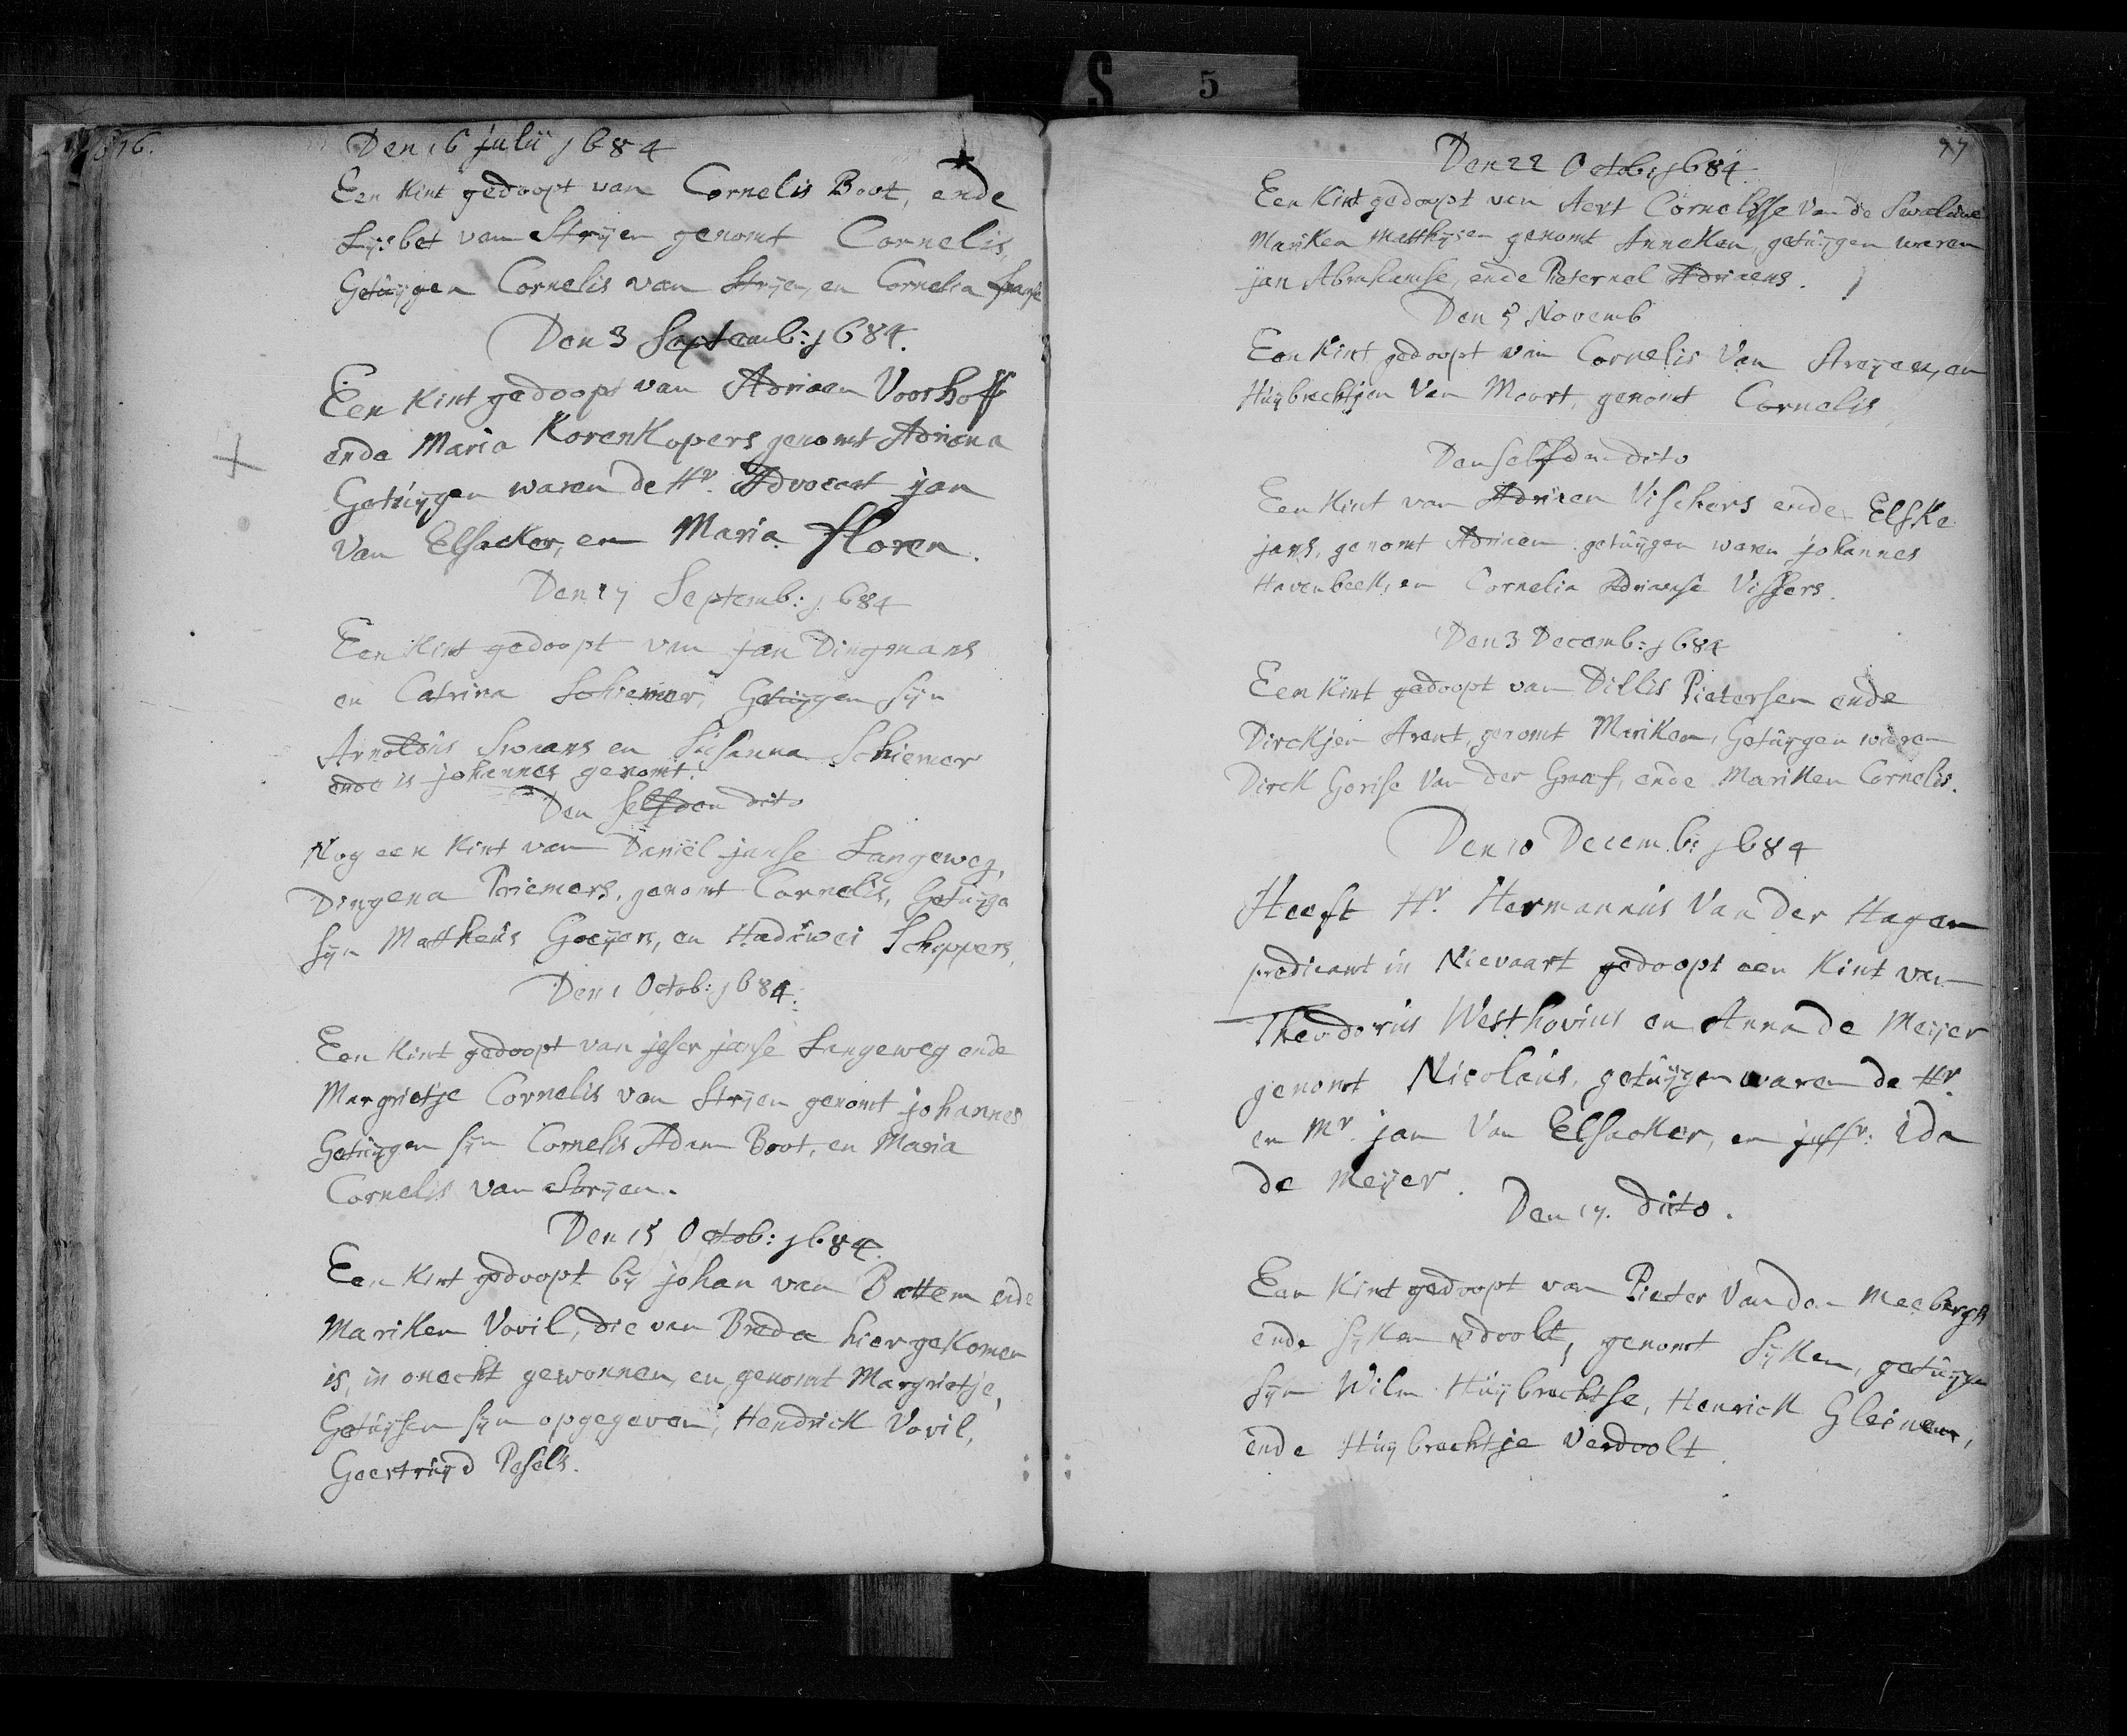 S 5
76.
Den 16 julii 1684
Een Kint gedoopt van Cornelis Boot, ende
Lysbet van Stryen genomt Cornelis,
Getuygen Cornelis van Stryen, en Cornelia franse
Den 3 Septemb: 1684.
Een Kint gedoopt van Adriaen Voorhoff
ende Maria Korenkopers genomt Adriana
Getuygen waren de Hr. Advocaet jan
Van Elsacker, en Maria floren.
Den 17 Septemb: 1684
Een Kint gedoopt van jan Dingmans
en Catrina Schiemer, Getuygen syn
Arnoldus Swaans en Susanna Schiemer
ende is johannes genomt.
Den selfden dito
Nog een Kint van Daniel janse Langeweg,
Dingena Priemers, genomt Cornelis, Getuyge
syn Mattheus Goeyers, en Haduwei Schippers,
Den 1 Octob: 1684.
Een Kint gedoopt van jeser janse Langeweg ende
Margrietje Cornelis van Stryen genomt johannes
Getuygen syn Cornelis Adam Boot, en Maria
Cornelis van Stryen.
Den 15 Octob: 1684.
Een Kint gedoopt by johan van Battem ende
Mariken Vovil, die van Breda hier gekomen
is, in onecht gewonnen, en genomt Margrietje,
Getuygen syn opgegeven, Hendrick Vovil,
Geertruyd Pesels.
77
Den 22 Octob: 1684.
Een Kint gedoopt van Aert Cornelisse Van de Swaluwe
Mariken Matthysen genomt Anneken, getuygen waren
jan Abrahamse, ende Pieternel Adriaens.
Den 5 Novemb
Een Kint gedoopt van Cornelis Van Streyen, en
Huybrechtjen Van Moort, genomt Cornelis,
Den selfden dito
Een Kint van Adriaen Vischers ende Elske
jans, genomt Adriaen getuygen waren johannes
Havenbeek, en Cornelia Adrianse Vissers.
Den 3 Decemb: 1684
Een Kint gedoopt van Dillis Pietersen ende
Dirckjen Arent, genomt Mariken, Getuygen waren
Dirck Gorise Van der Graaf, ende Mariken Cornelis.
Den 10 Decemb: 1684
Heeft Hr. Hermannus Van der Hagen
predicant in Nievaart gedoopt een Kint van
Theodorus Westhovius en Anna de Meijer
genomt Nicolaus, getuygen waren de Hr.
en Mr. jan Van Elsacker, en juffr: Ida
de Meijer.
Den 17. dito.
Een Kint gedoopt van Pieter Van den Meebergh
ende Syken verdoolt, genomt Syken, getuyge
syn Wilm Huybrechtse, Henrick Gleinen,
ende Huybrechtje Verdoolt